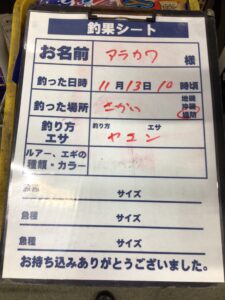 釣果シート
お名前 アラカワ 様
釣った日時 11月13日10時頃
釣った場所 さかい 地磯 沖磯 堤防
釣り方 エサ 釣り方 エサ ヤエン
ルアー、エギの
種類・カラー
魚種 サイズ
魚種 サイズ
魚種 サイズ
お持ち込みありがとうございました。